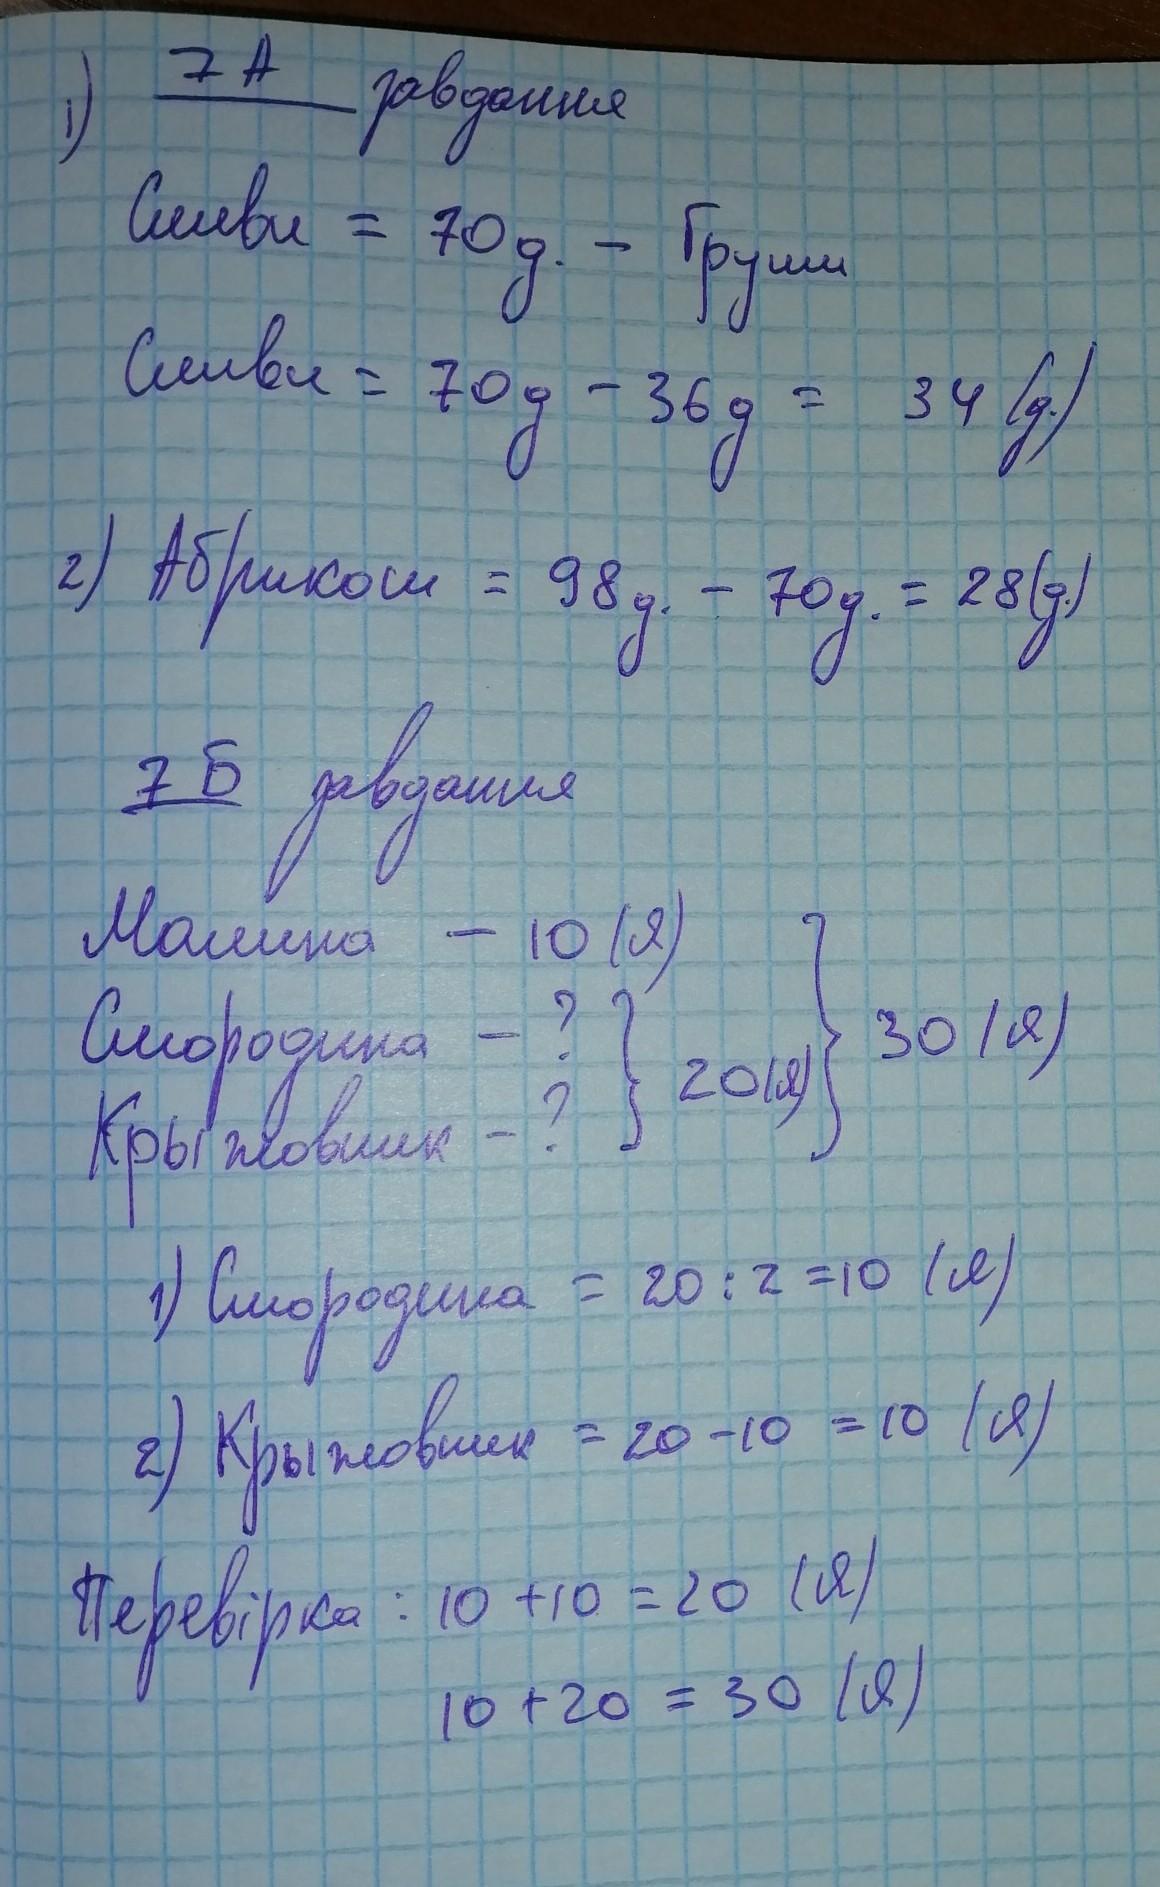 1) 7 А завдання
Сливи = 70 д. - Груши
Сливи = 70 д - 36 д = 34 (д.)
2) Абрикоси = 98 д. - 70 д. = 28 (д.)
7 Б завдання
Малина - 10 (Я) } 30 (Я)
Смородина - ? } 20 (Я)
Крыжовник - ?
1) Смородина = 20 : 2 = 10 (Я)
2) Крыжовник = 20 - 10 = 10 (Я)
Перевірка : 10 + 10 = 20 (Я)
10 + 20 = 30 (Я)